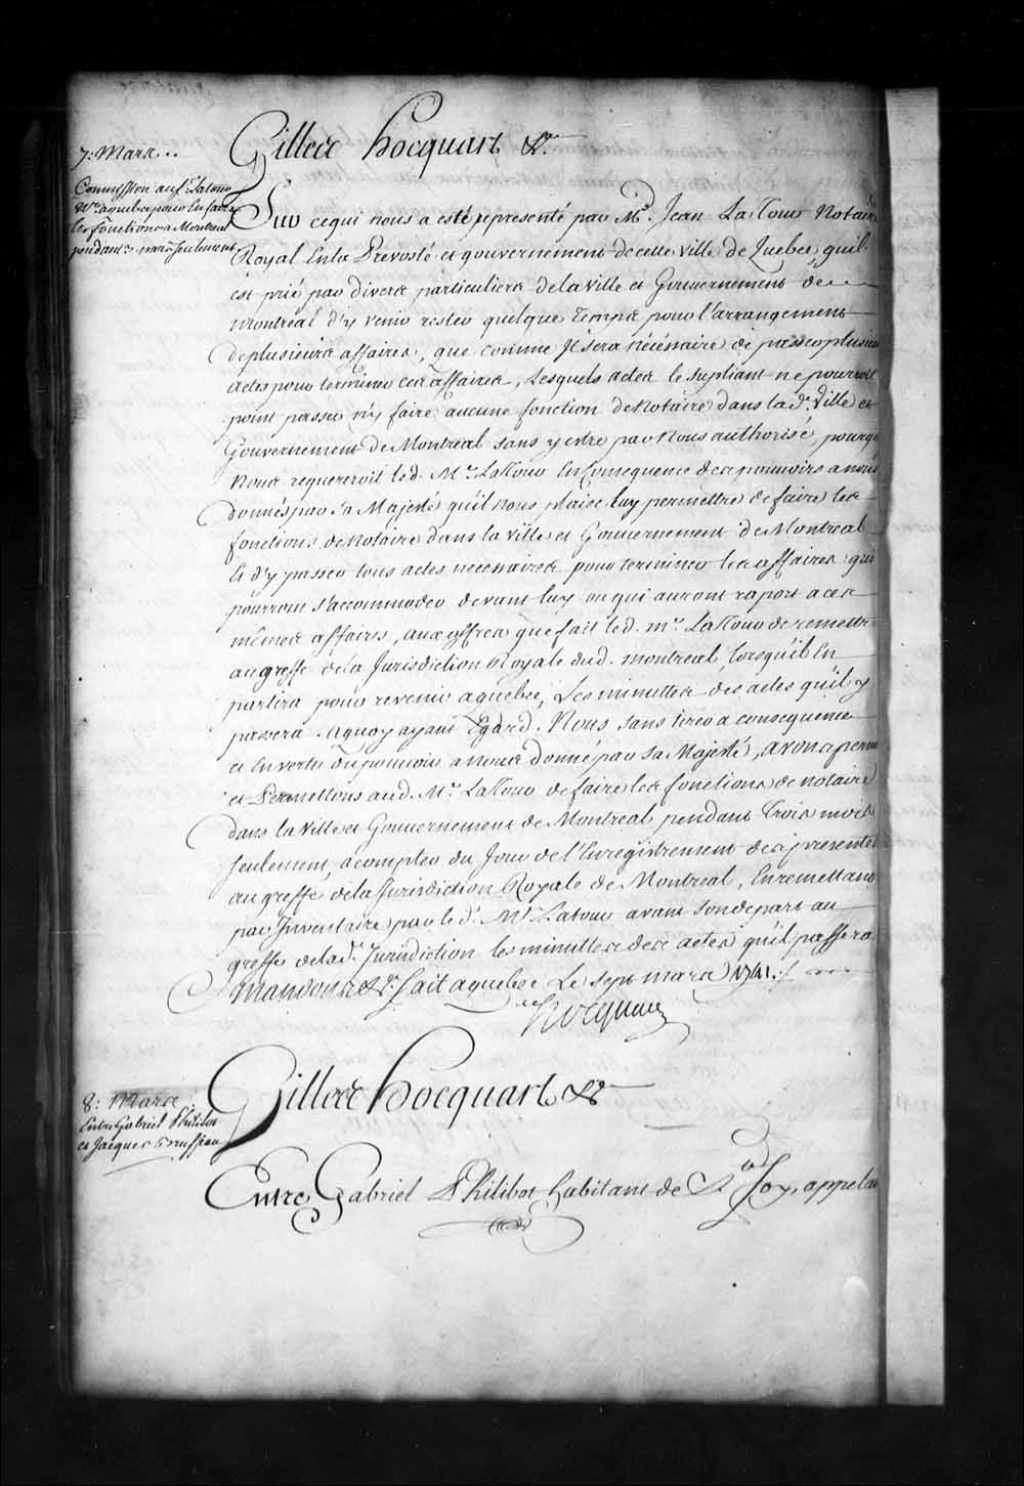 7: Mars..
Commission au Sr. Latour
Nre. a quebec pour En faire
les fonctions a Montreal
pendant 3 mois seulement
Gilles hocquart &a.
Sur ce qui nous a esté representé par Me. Jean LaTour Notaire
Royal En la Prevosté et gouvernement de cette ville de Quebec, quil
est prié par divers particuliers de la ville et Gouvernement de
Montreal d'y venir rester quelque temps pour l'arrangement
de plusieurs affaires, que comme Il sera nécéssaire de passer plusieurs
actes pour terminer ces affaires, Lesquels actes le supliant ne pourroit
point passer n'y faire aucune fonction de Notaire dans lad. Ville et
Gouvernement de Montreal sans y estre par Nous authorisé, pourquoy
Nous requereroit led. Me. LaTour En Consequence des pouvoirs a nous
donnés par sa Majesté qu'il nous plaise luy permettre de faire les
fonctions de Notaire dans la ville et Gouvernement de Montreal
& d'y passer tous actes necessaires pour terminer les affaires qui
pourront s'accommoder devant luy ou qui auront raport a ces
mêmes affaires, aux offres que fait led. Me. LaTour de remettre
au greffe de la Jurisdiction Royale dud. montreal, lorsqu'il En
partira pour revenir a quebec, Les minuttes des actes qu'il y
passera. aquoy ayant Egard. Nous sans tirer a consequence
et En vertu du pouvoir a Nous donné par sa Majesté, avons permis
et Permettons aud. Me. LaTour de faire les fonctions de notaire
dans la Ville et Gouvernement de Montreal pendant trois mois
seulement, a compter du Jour de l'Enregistrement des presentes
au greffe de la Jurisdiction Royale de Montreal, En remettant
par Inventaire par led. Me. Latour avant son depart au
greffe de lad. Jurisdiction les minuttes des actes qu'il passera
Mandons &a. fait a quebec Le sept mars 1741./.
hocquart
8: Mars
Entre Gabriel Philibot
et Jacques
Gilles hocquart &a
Entre Gabriel Philibot habitant de Ste. foy, appelant